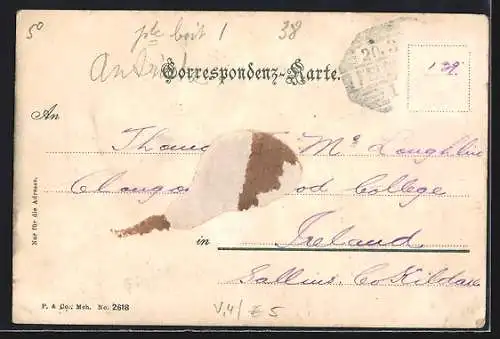 50 pte boit 1 38
Austria
Correspondenz-Karte.
20.3
1
139.
An
Thom Mc Loughlin
Clongo od College
in Ireland
Sallins, Co Kildare
Nur für die Adresse.
P. & Co., Mch. No. 2618
V,4/ £5